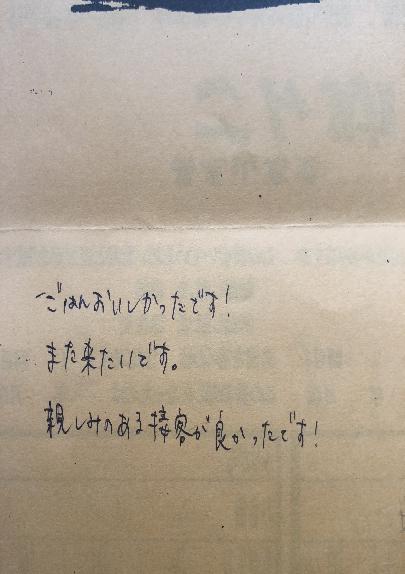 ごはんおいしかったです!
また来たいです。
親しみのある接客が良かったです!